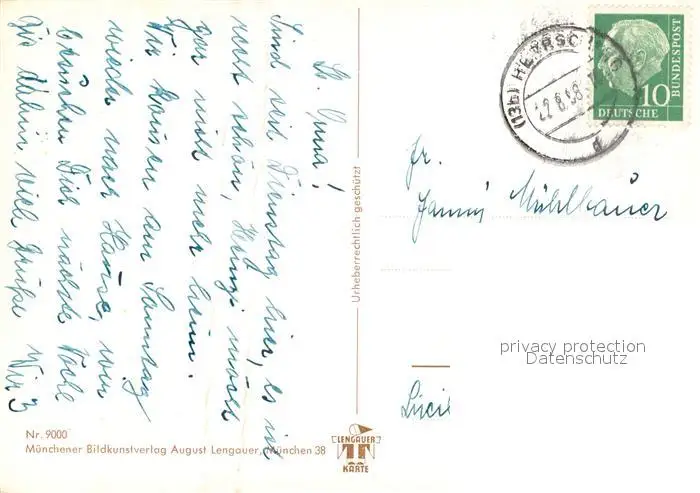 Lb. Oma!
Sind seit Dienstag hier, es ist
recht schön, Heinzi möcht
gar nicht mehr heim.
Wir kommen am Samstag
wieder nach Hause, wir
besuchen Dich nächste Woche
bis dahin viele Grüße Wir 3
Nr. 9000
Münchener Bildkunstverlag August Lengauer, München 38
LENGAUER
KARTE
Urheberrechtlich geschützt!
(13b) HERRSCHING
22.8.58
DEUTSCHE
BUNDESPOST
10
Fr.
Fanny Mühlbauer
privacy protection
Datenschutz